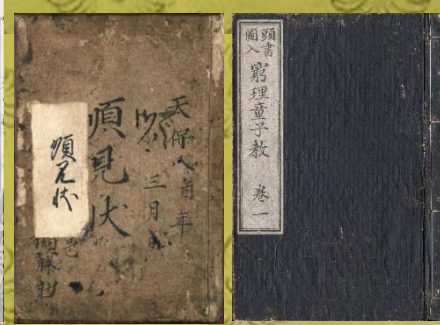 天保八酉年
三月
順見状
順見状
頭書
圖入
窮理童子教 卷一